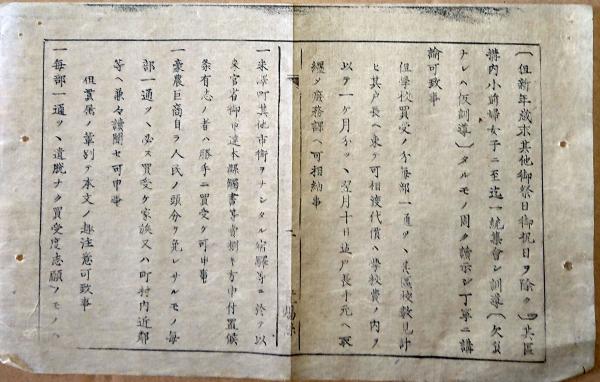 （但新年歳末其他御祭日御祝日ヲ除ク）其區
搆内小前婦女子ニ至迄一統集會シ訓導（欠員
ナレハ仮訓導）タルモノ周ク讀示シ丁寧ニ講
諭可致事
但學校買受ノ分毎部一通ツヽ其區校數見計
ヒ其戸長ヘ
以テ一ケ月分ツヽ翌月十日迄戸長手元ヘ取
纒メ庶務課ヘ可相納事
一米澤町其他市街ヲナシタル宿驛等ニ於テ以
来官省御布達本縣觸書等賣捌キ方申付置候
条有志ノ者ハ勝手ニ買受ケ可申事
一豪農巨商自ラ人民ノ頭分タル者毎
部一通ツヽ必ス買受ケ家族又ハ町村内近鄰
等ヘ兼々讀聞セ可申事
但賣買ノ本文ノ趣注意可致事
一毎部一通ツヽ遺脱ナク買受度志願ノモノハ